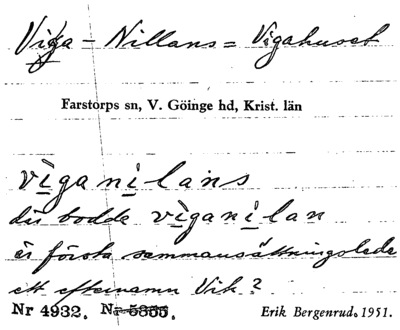 Viga-Nillans = Vigahuset
Farstorps sn, V. Göinge hd, Krist. län
vìganilans
där bodde vìganilan
är första sammansättningslede
ett efternamn Vik?
Nr 4932. Nr 5355. Erik Bergenrud. 1951.